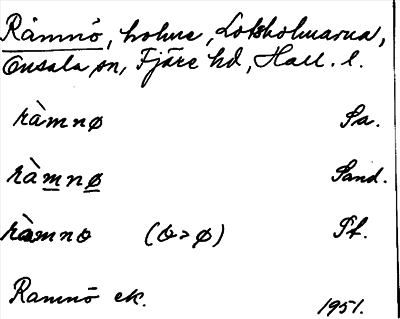 Ramnö, holme, Loksholmarna,
Onsala sn, Fjäre hd, Hall. l.
ràmnø Sa.
ràmnø Sand.
ràmno (o>ø) Pf.
Ramnö ek.
1951.